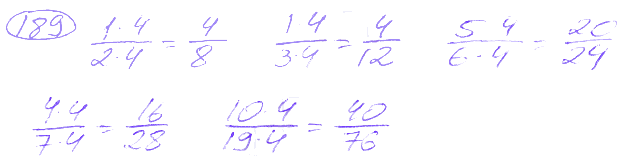 189 1·4/2·4 = 4/8 1·4/3·4 = 4/12 5·4/6·4 = 20/24
4·4/7·4 = 16/28 10·4/19·4 = 40/76